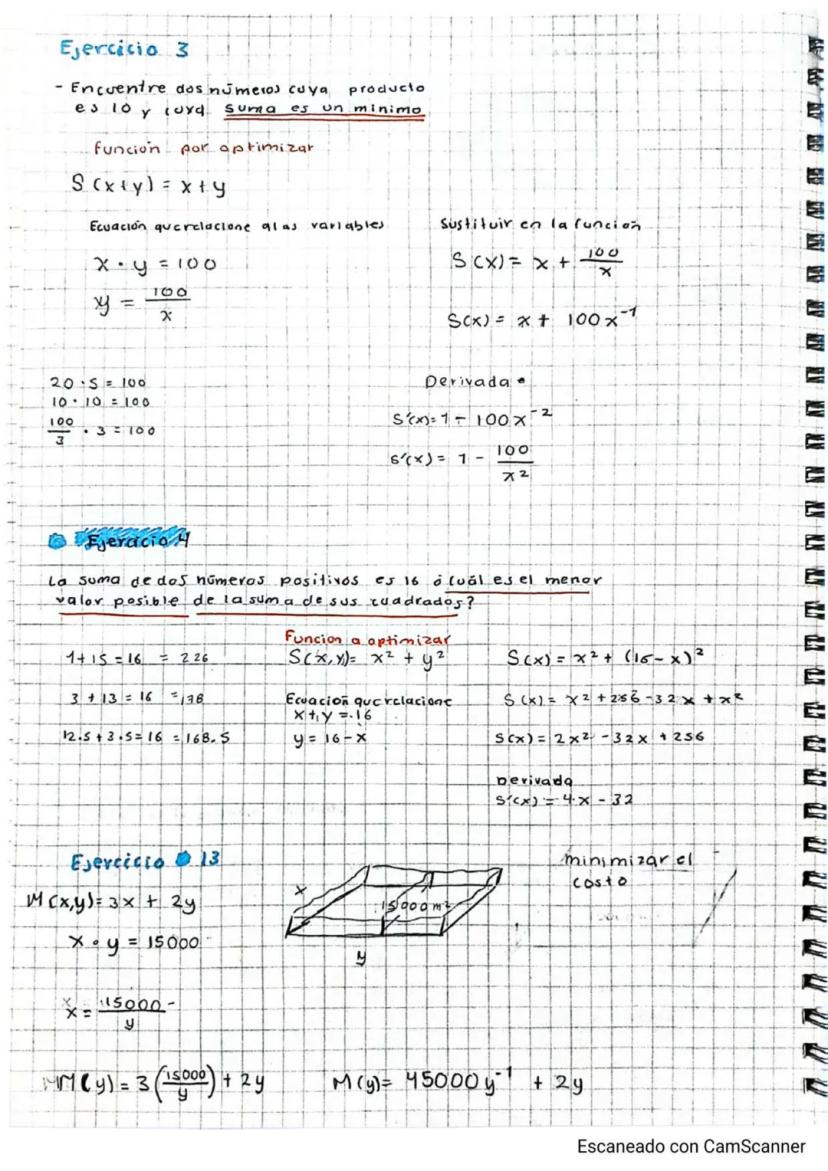 Ejercicio 3
- Encuentre dos números cuya producto
es 10 y cuya suma es un minimo
función por optimizar
S (x+y) = x + y
Ecuación que relacione a las variables
x · y = 100
y = 100/x
Sustituir en la función
S (x) = x + 100/x
S(x) = x + 100x⁻¹
20 · 5 = 100
10 · 10 = 100
100/3 · 3 = 100
Derivada
S'(x) = 1 - 100x⁻²
S'(x) = 1 - 100/x²
Ejercicio 4
La suma de dos números positivos es 16 ¿cuál es el menor
valor posible de la suma de sus cuadrados?
1+15 = 16 = 226
3 + 13 = 16 = 178
12.5 + 3.5 = 16 = 168.5
Funcion a optimizar
S(x,y) = x² + y²
Ecuación que relacione
x + y = 16
y = 16 - x
S(x) = x² + (16 - x)²
S(x) = x² + 256 - 32x + x²
S(x) = 2x² - 32x + 256
Derivada
S'(x) = 4x - 32
Ejercicio 13
M(x,y) = 3x + 2y
x · y = 15000
x = 15000/y
x
15000 m²
y
minimizar el
costo
M(y) = 3 (15000/y) + 2y
M(y) = 45000 y⁻¹ + 2y
Escaneado con CamScanner